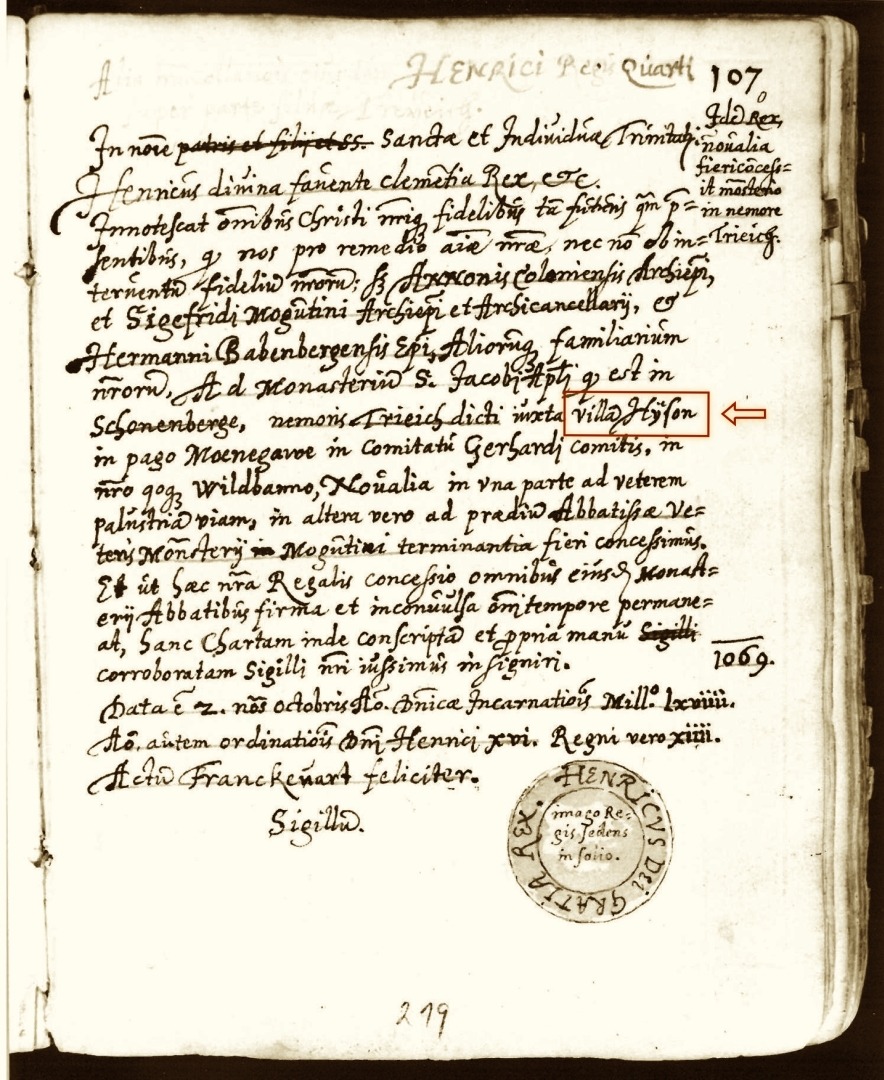 HENRICI Regis Quarti
107
Idē Rex,
novalia
fiericōcess=
it mōsterio
in nemore
Trieich.
In noīe patris et filij et SS. Sanctæ et Individuæ Trinitatis.
Henricus divina favente clemētia Rex, &c.
Innotescat omībus Christi nrīsq fidelibus tā futuris qm̄ p=
sentibus, q nos pro remedio aīæ nræ, nec nō ob in=
terventū fideliū nrorū: sz Annonis Coloniensis Archiepī,
et Sigefridi Mogūtini Archiepī et Archicancellarij, &
Hermanni Babenbergensis Epī, Aliorūq familiarium
nrorū, Ad Monasteriū S. Jacobi Aplī q est in
Schonenberge, nemoris Trieich dicti iuxta villā Hÿson
in pago Moenegawe in Comitatu Gerhardi comitis, in
nro qoq Wildbanno, Novalia in vna parte ad veterem
palustriā viam, in altera vero ad prædiū Abbatissæ Ve=
teris Monsterij in Mogūtini terminantia fieri concessimus.
Et ut hæc nra Regalis concessio omnibus eiusd Monast=
erij Abbatibus firma et inconvulsa omī tempore permane=
at, hanc Chartam inde conscriptā et ppria manu Sigilli
corroboratam Sigilli nri iussimus insigniri.
1069.
Data ē 2. nōs octobris Aō. Dnicæ Incarnatiōis Mill.o lxviiii.
Aō. autem ordinatiōis Dnī Henrici xvi. Regni vero xiiii.
Actū Franckenvart feliciter.
Sigillū.
HENRICVS DEI GRATIA REX.
imago Re=
gis sedens
in solio.
219